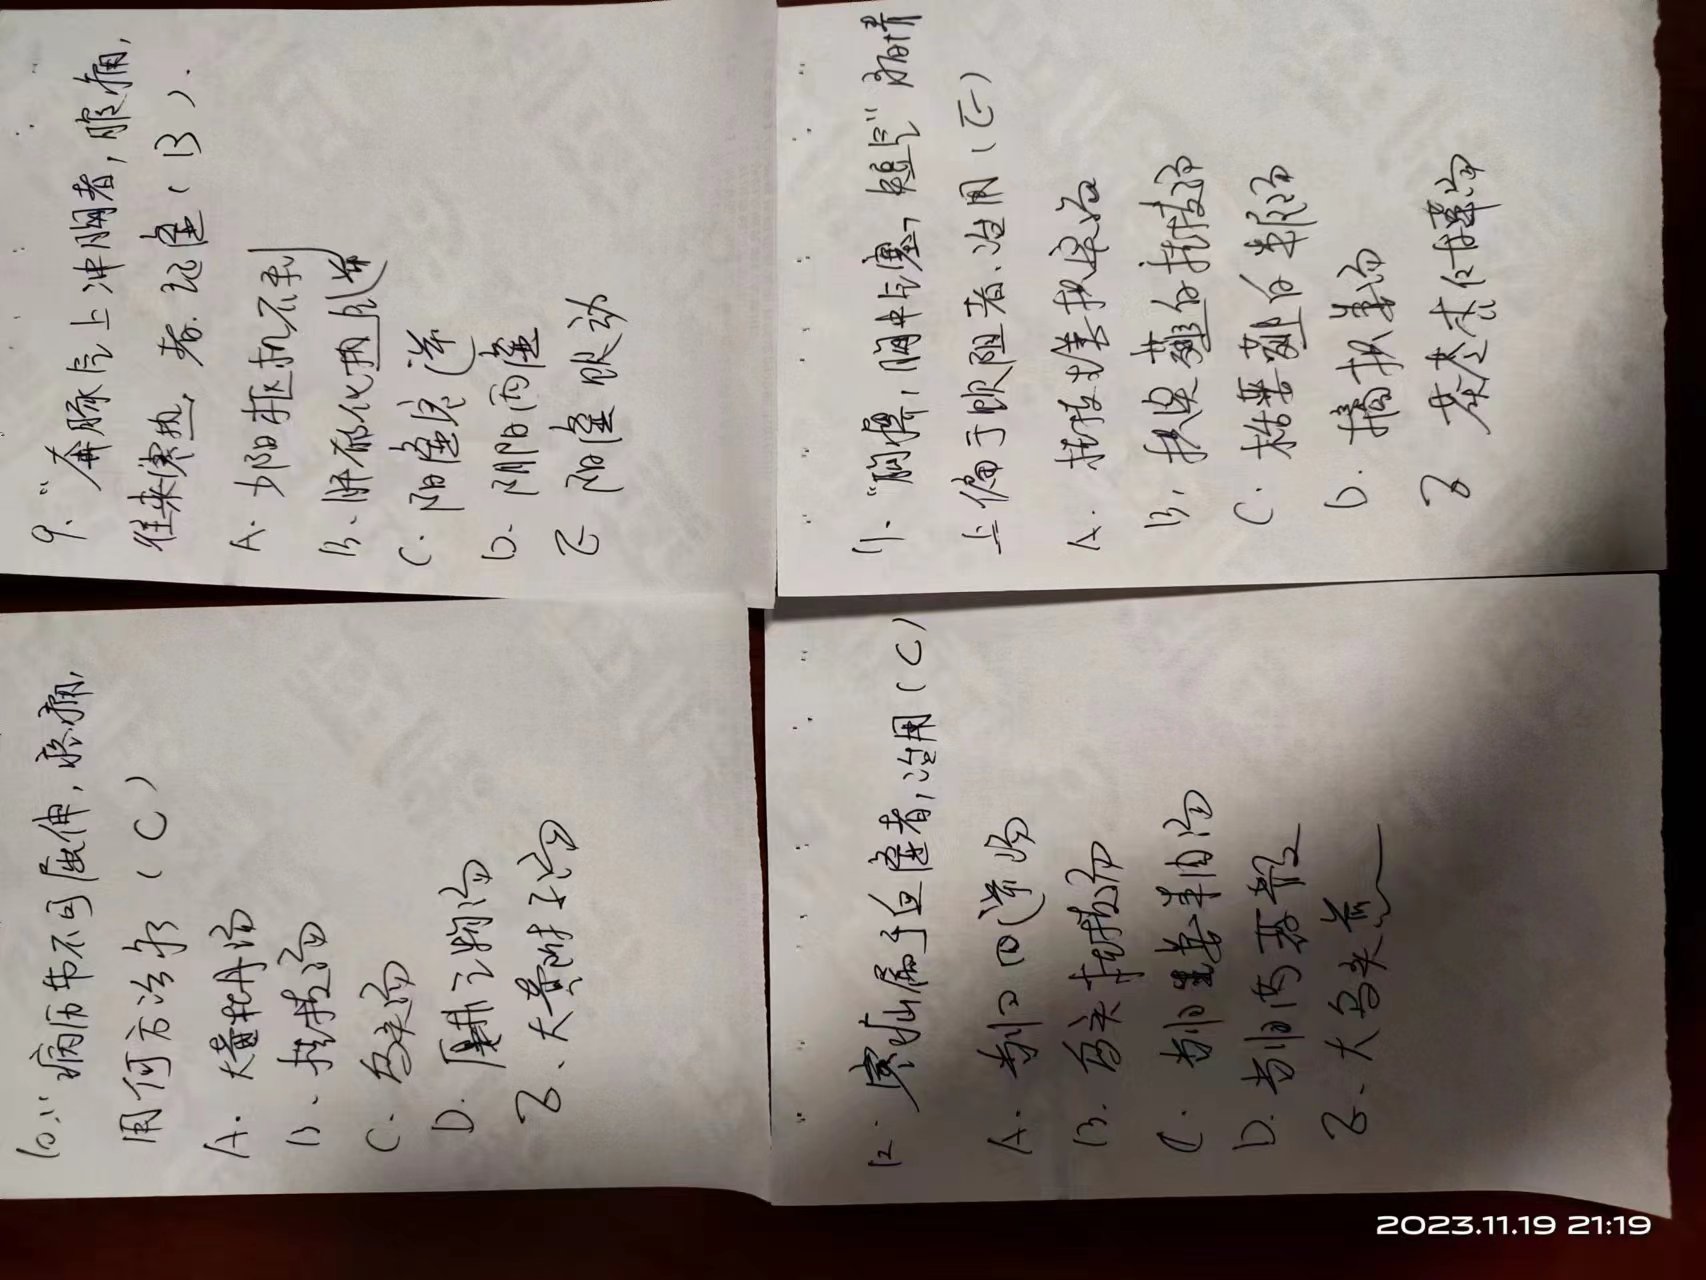 9. "奔豚气上冲胸者,腹痛,
往来寒热,者.证属(B).
A. 少阳枢机不利
B. 肝郁化热气逆
C. 阳虚泛逆
D. 阴阳两虚
E 阳虚饮动
10."病历节不可屈伸,疼痛,
用何方治疗(C)
A. 大黄牡丹汤
B. 桂枝汤
C. 乌头汤
D. 厚朴三物汤
E. 大黄附子汤
11."胸痹,胸中气塞,短气"病情
上偏于饮阻者.治用(E)
A. 桂枝生姜枳实汤
B. 枳实薤白桂枝汤
C. 栝蒌薤白半夏汤
D. 橘枳姜汤
E 茯苓杏仁甘草汤
12. 寒疝属于血虚者,治用(C)
A. 当归四逆汤
B. 乌头桂枝汤
C. 当归生姜羊肉汤
D. 当归芍药散
E. 大乌头煎
2023.11.19 21:19